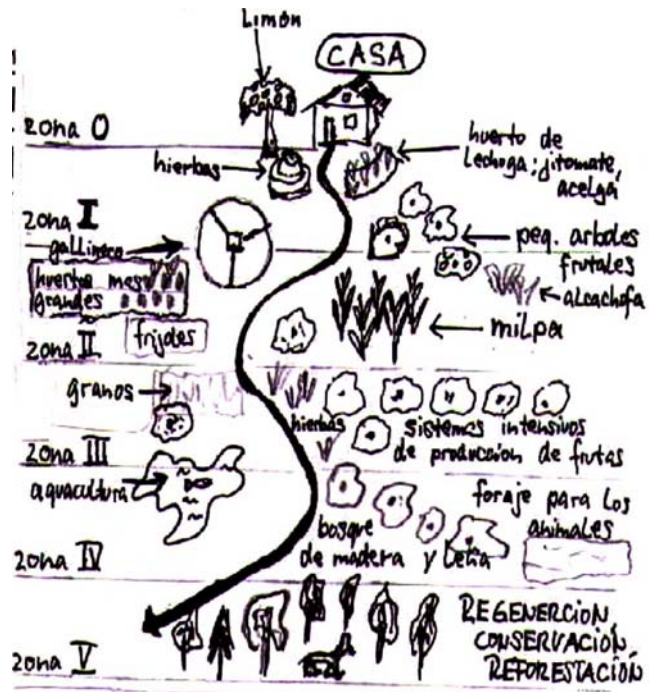 Limón
CASA
zona 0
hierbas
huerto de
Lechoga; jitomate,
acelga
zona I
gallinero
peq. arboles
frutales
huertos mes
grandes
alcachofa
milpa
frijoles
zona II
granos
hierbas
sistemas intensivos
de produccion de frutas
zona III
aquacultura
foraje para los
animales
bosque
de madera y Leña
zona IV
REGENERCION,
CONSERVACIÓN,
REFORESTACIÓN
zona V